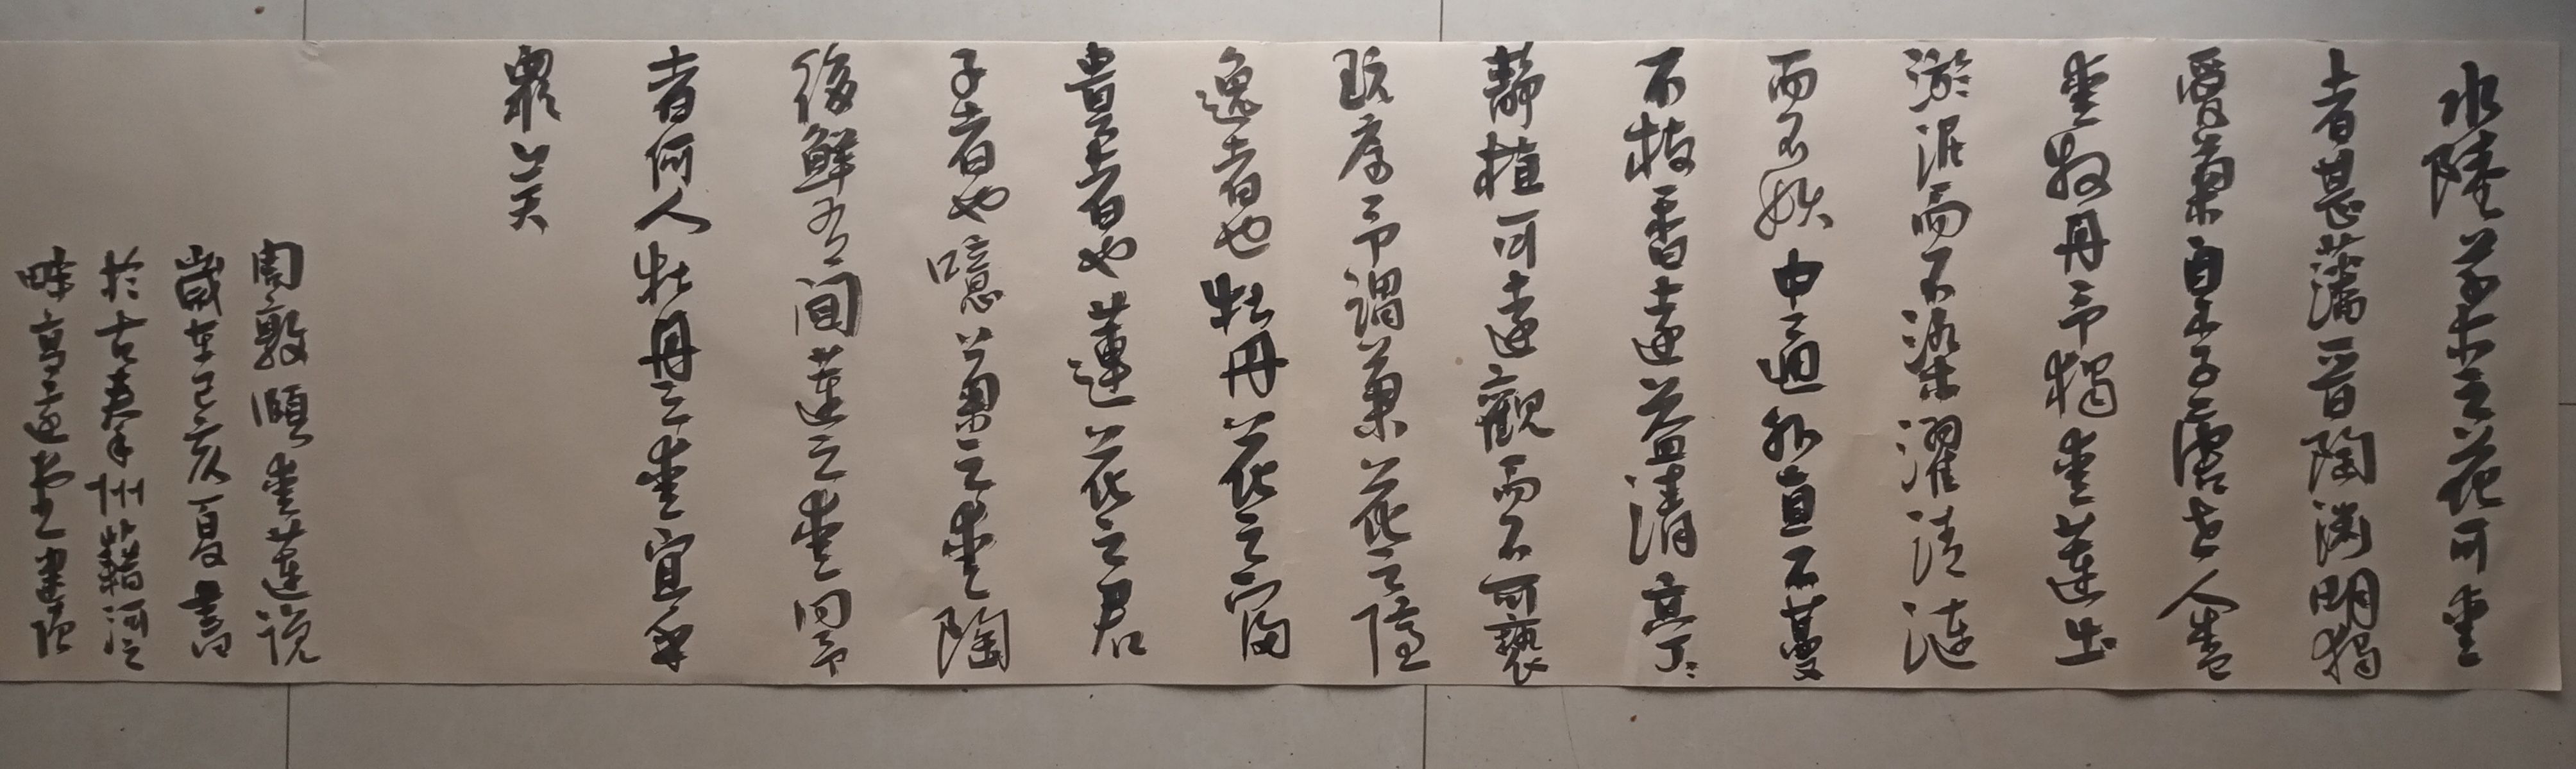 水陸草木之花可愛
者甚蕃晉陶渊明獨
愛菊自李唐世人盛
愛牡丹予獨愛蓮出
淤泥而不染濯清漣
而不妖中通外直不蔓
不枝香遠益清亭亭
静植可遠觀而不可褻
玩焉予謂菊花之隱
逸者也牡丹花之富
貴者也蓮花之君
子者也噫菊之愛陶
後鮮有聞蓮之愛同予
者何人牡丹之愛宜乎
衆矣
周敦頤愛蓮說
歲在己亥夏書
於古秦州藉河之
畔高遠堂建